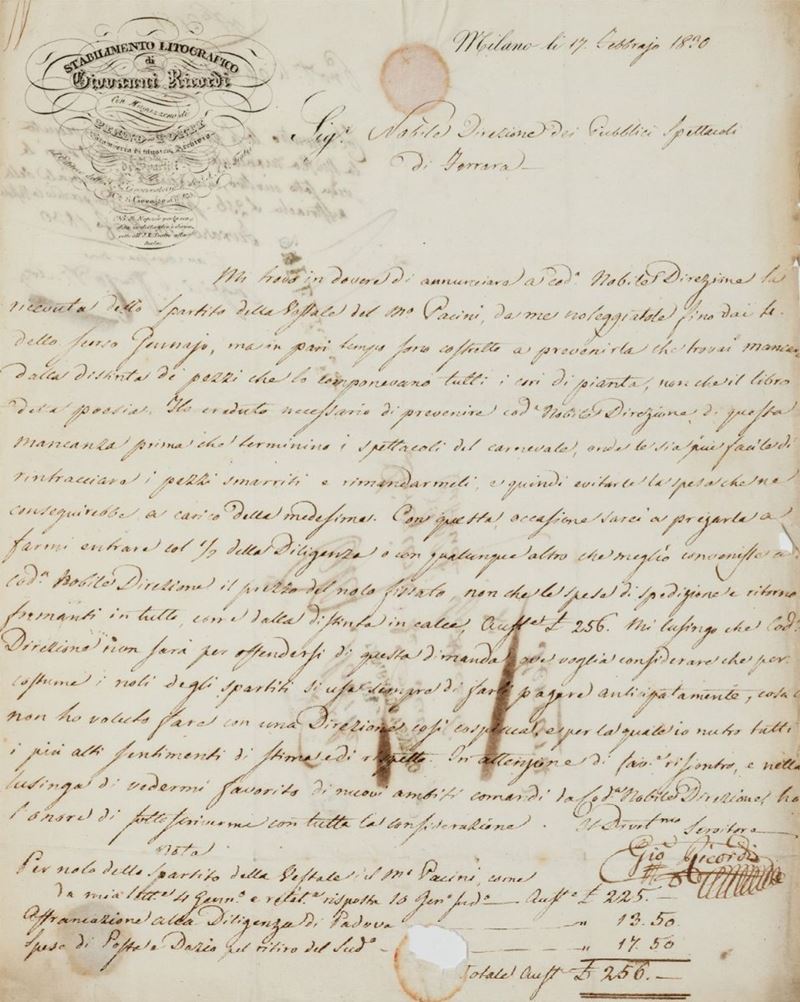 STABILIMENTO LITOGRAFICO
di
Giovanni Ricordi
Con Magazzeno di
Milano li 17. Febbrajo 1830
Sigr. Nobile Direzione dei Pubblici Spettacoli
di Ferrara
Mi trovo in dovere di annunciare a codª Nobile Direzione la
ricevuta dello Spartito della Vestale del Mº Pacini, da me noleggiatole fino dai
dello scorso Gennajo, ma in pari tempo sono costretto a prevenirla che trovai
dalla distinta de pezzi che lo componevano tutti i cori di pianta, non che il libro
della poesia. Ho creduto necessario di prevenire codª Nobile Direzione di questa
mancanza prima che terminino i spettacoli del carnevale, onde le sia più facile di
rintracciare i pezzi smarriti e rimandarmeli, e quindi evitarle la spesa che ne
conseguirebbe a carico della medesima. Con questa occasione sarei a pregarla a
farmi entrare col della Diligenza o con qualunque altro che meglio convenisse a
codª Nobile Direzione il prezzo del nolo fissato, non che le spese di spedizione e ritorno
formanti in tutto, come dalla distinta in calce, Auste £ 256. Mi lusingo che Codª
Direzione non sarà per offendersi di questa dimanda ove voglia considerare che per
costume i noli degli spartiti si usa sempre di farli pagare anticipatamente, cosa
non ho voluto fare con una Direzione così cospicua, e per la quale io nutro tutti
i più alti sentimenti di stima e di rispetto. In attenzione di favº riscontro, e nella
lusinga di vedermi favorito di nuovi ambiti comandi da Codª Nobile Direzione ho
l'onore di sottoscrivermi con tutta la considerazione. Il Devotmo Servitore
Gioº Ricordi
Nota
Per nolo dello Spartito della Vestale del Mº Pacini, come
da mia lettª 4 Gennº e relatª risposta 10 Genº sudº Auste £ 225.—
Affrancazione alla Diligenza di Padova — " 13.50
Spese di Posta e Dazio pel ritiro del Sudº — " 17.50
Totale Aust £ 256.—